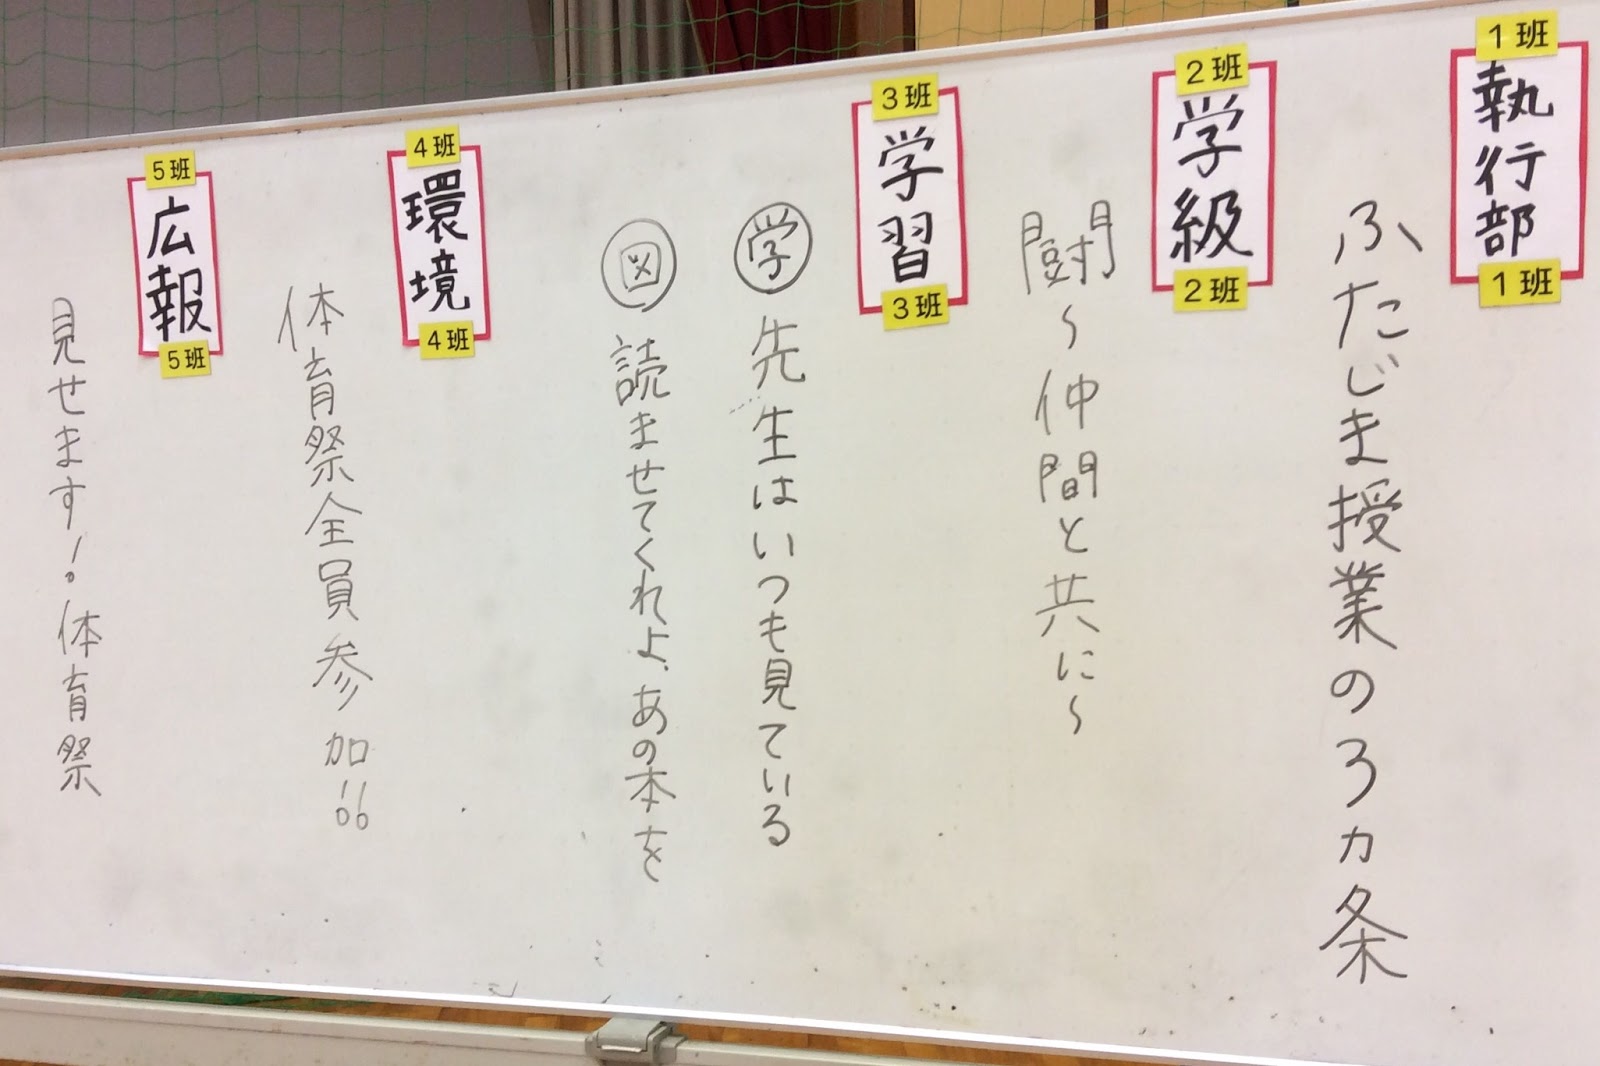 1班
執行部
1班
ふたじま授業の3ヵ条
2班
学級
2班
闘～仲間と共に～
3班
学習
3班
学 先生はいつも見ている
図 読ませてくれよ、あの本を
4班
環境
4班
体育祭全員参加!!
5班
広報
5班
見せます!体育祭